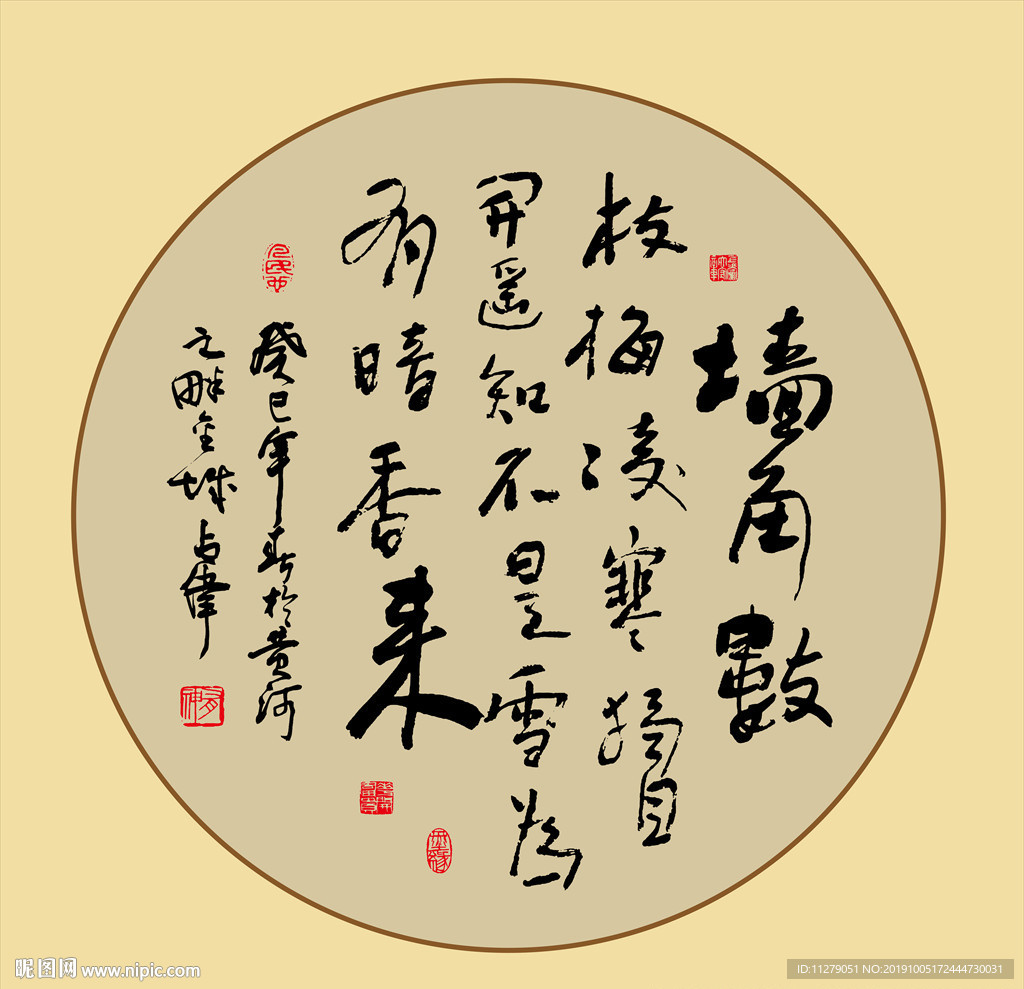 墙角數
枝梅凌寒獨自
開遥知不是雪為
有暗香来
癸巳年春於黄河
之畔金城占偉
昵图网 www.nipic.com
ID:11279051 NO:20191005172444730031